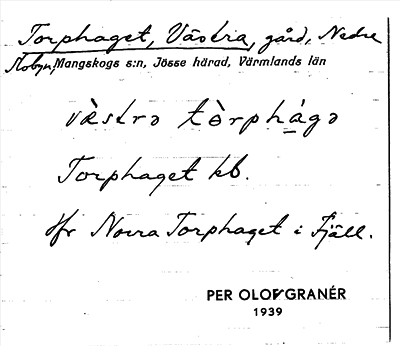 Torphaget, Västra, gård, Nedre
Mobyn, Mangskogs s:n, Jösse härad, Värmlands län
västrə tòrphágə
Torphaget kb.
Jfr Norra Torphaget i Fjäll.
PER OLOF GRANÉR
1939